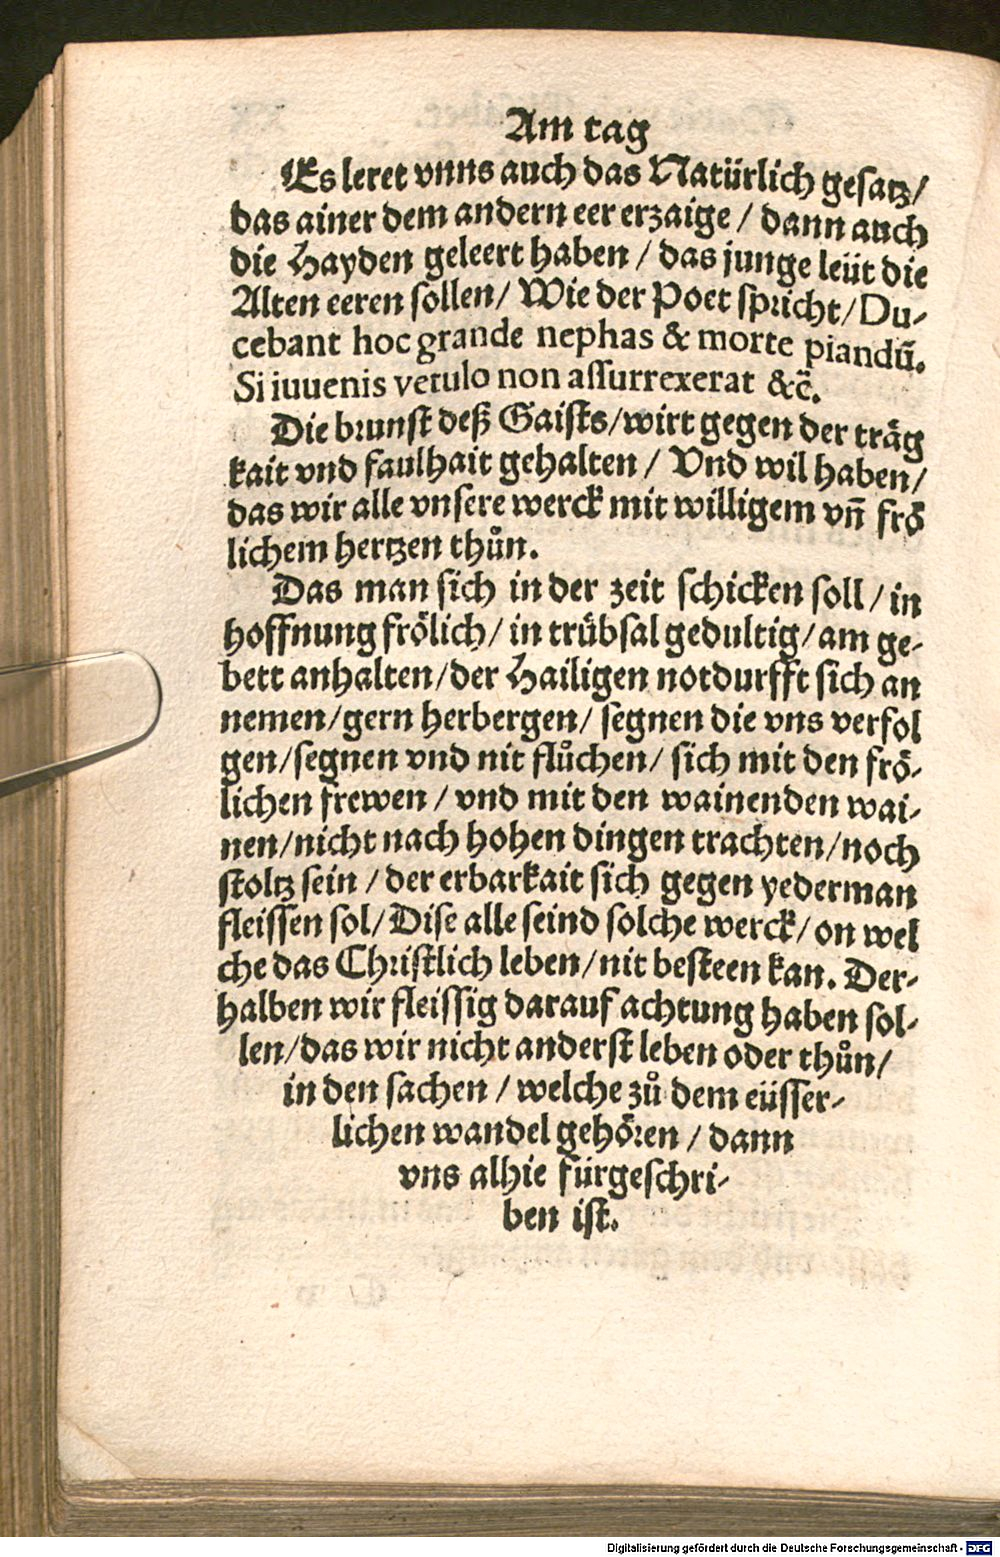 Am tag
Es leret vnns auch das Natürlich gesatz/
das ainer dem andern eer erzaige / dann auch
die Hayden geleert haben / das junge leüt die
Alten eeren sollen/ Wie der Poet spricht/Du-
cebant hoc grande nephas & morte piandũ.
Si iuuenis vetulo non assurrexerat &c̃.
Die brunst deß Gaists/wirt gegen der träg
kait vnd faulhait gehalten / Vnd wil haben/
das wir alle vnsere werck mit willigem vn̄ frö
lichem hertzen thůn.
Das man sich in der zeit schicken soll / in
hoffnung frölich/ in trübsal gedultig/am ge-
bett anhalten/der Hailigen notdurfft sich an
nemen/gern herbergen/ segnen die vns verfol
gen/segnen vnd nit flůchen/ sich mit den frö-
lichen frewen / vnd mit den wainenden wai-
nen/nicht nach hohen dingen trachten/noch
stoltz sein / der erbarkait sich gegen yederman
fleissen sol/ Dise alle seind solche werck/ on wel
che das Christlich leben/nit besteen kan. Der-
halben wir fleissig darauf achtung haben sol-
len/das wir nicht anderst leben oder thůn/
in den sachen / welche zů dem eüsser-
lichen wandel gehören / dann
vns alhie fürgeschri-
ben ist.
Digitalisierung gefördert durch die Deutsche Forschungsgemeinschaft - DFG